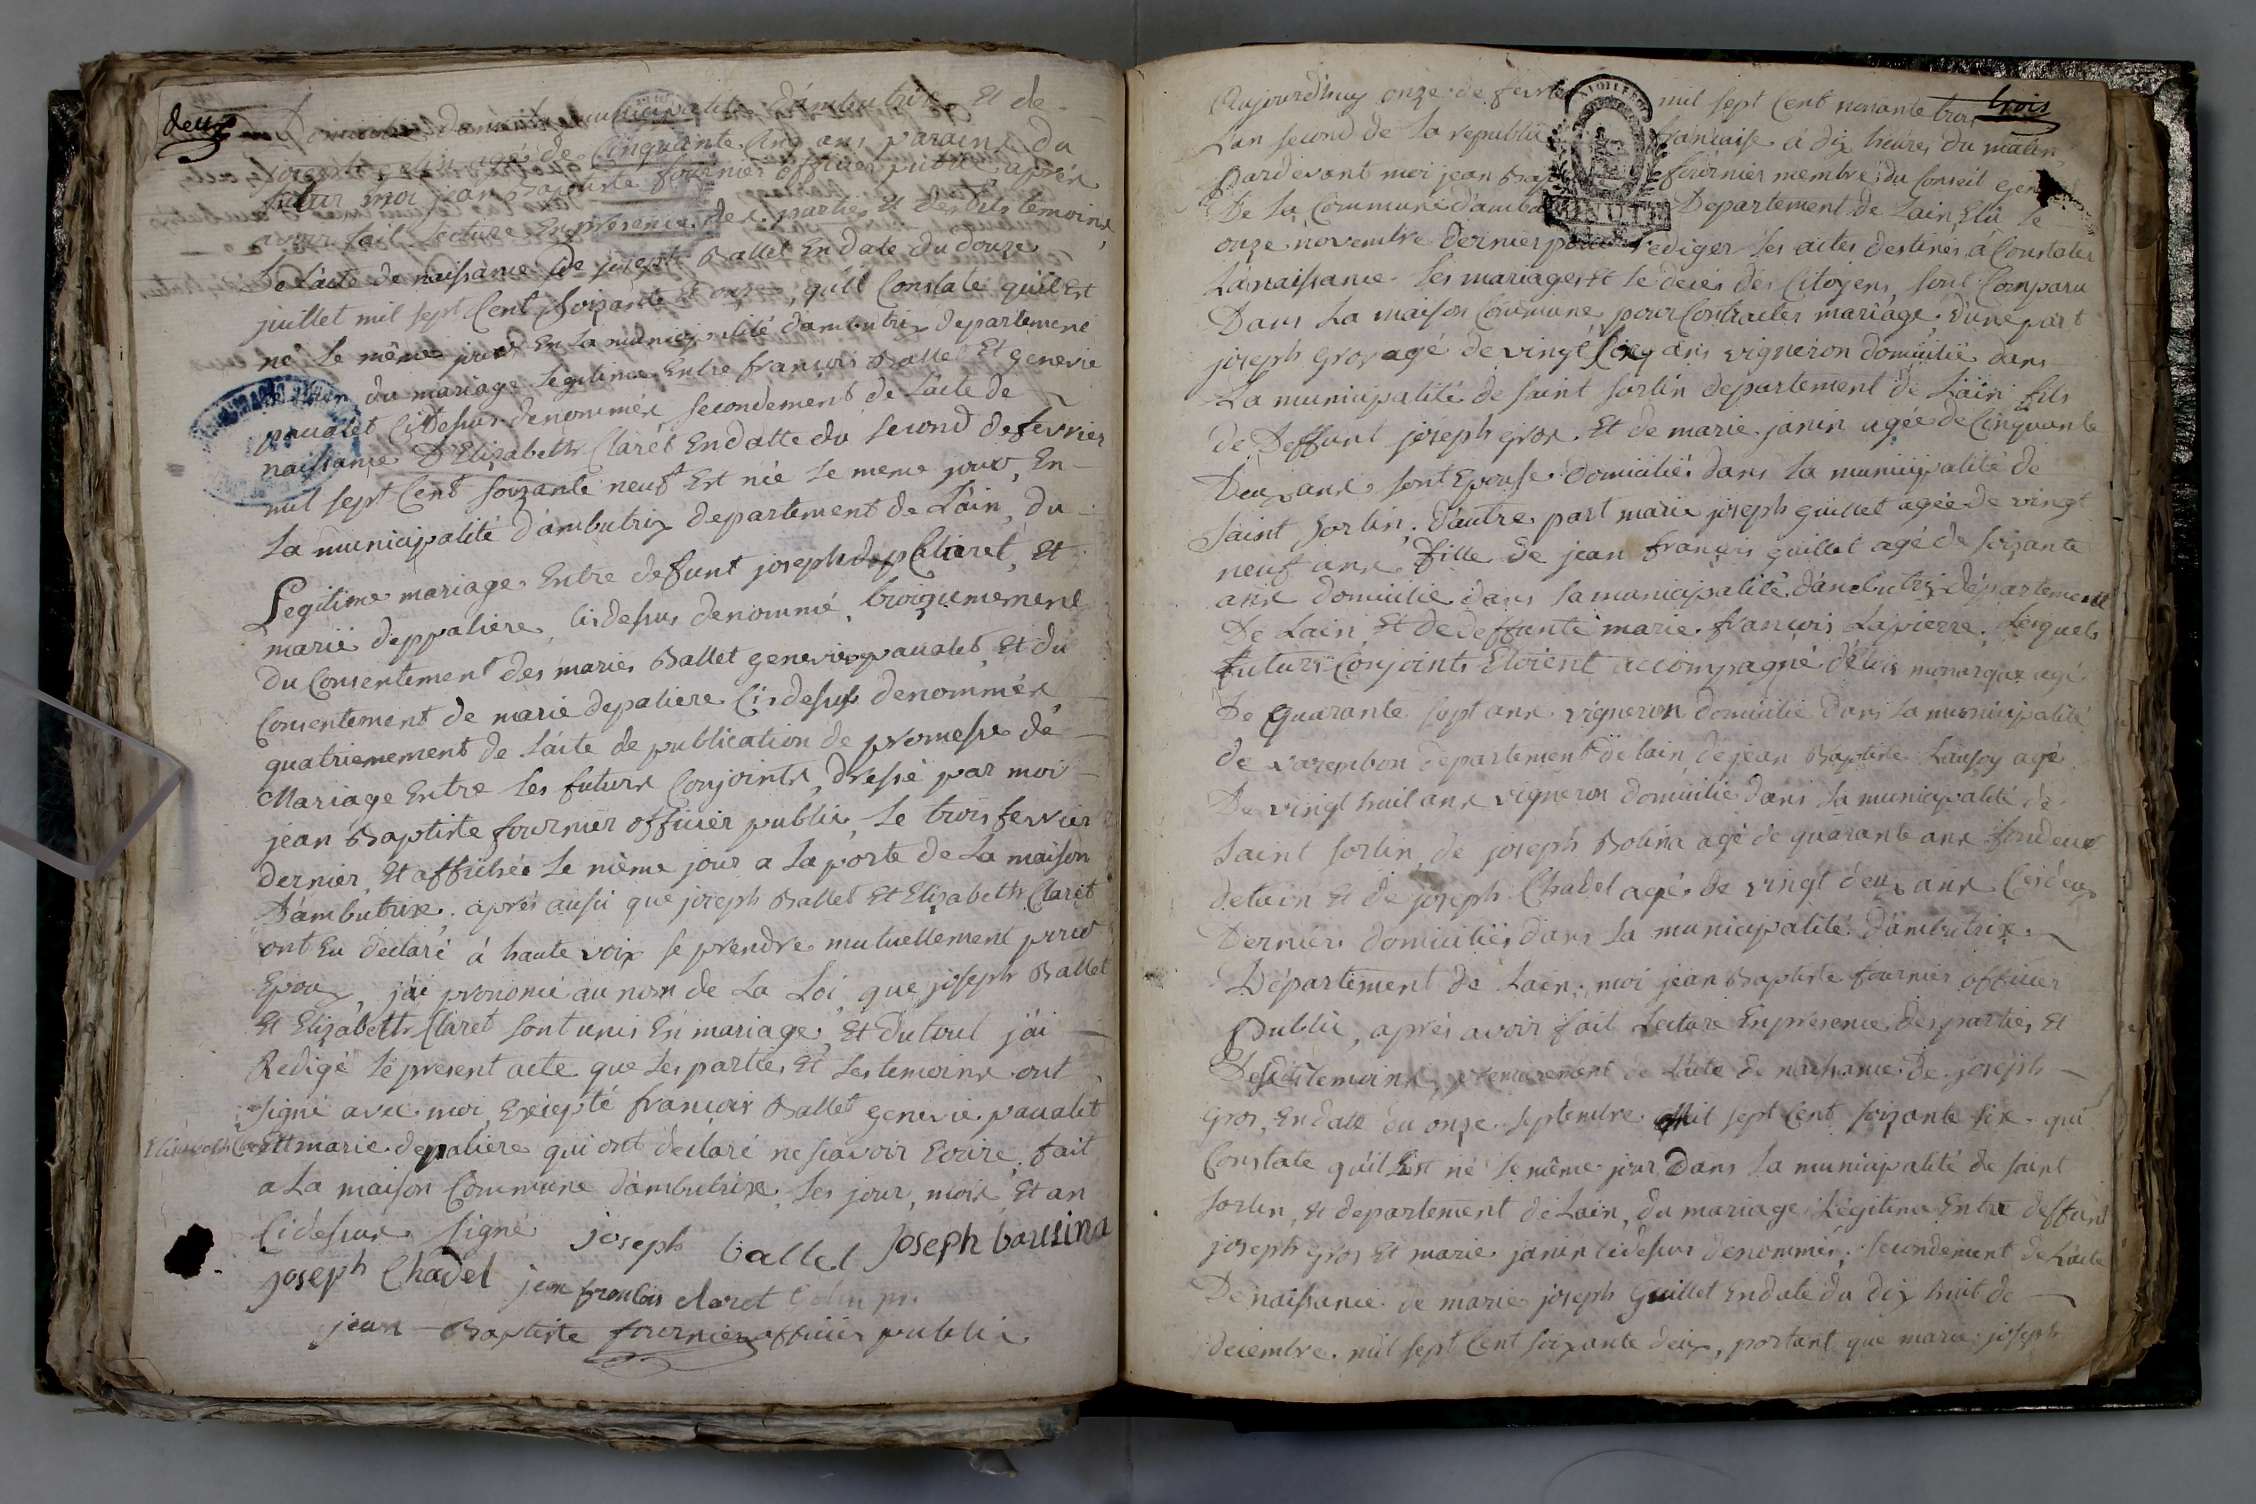 deux
municipalité d'ambutrix Et de
agé de Cinquante Cinq ans parains du
futur moi jean Baptiste fournier officier public après
avoir fait Lecture En presence des parties Et desdits temoins,
De L'acte de naissance de joseph Ballet En date du douze
juillet mil sept Cent Soixante Et onze, qu'il Constate quil Est
né Le même jour En La municipalité d'ambutrix departement
de Lain du mariage Legitime Entre françois Ballet Et genevie
paualet Cidessus denommés secondement de L'acte de
naissance D'Elizabeth Claret En datte du second de fevrier
mil sept Cent soixante neuf Est née Le meme jour, En
La municipalité d'ambutrix departement de L'ain, du
Legitime mariage Entre defunt joseph Claret, Et
marie deppaliere, Cidessus denommé, troisiemement
du Consentement des mariés Ballet genevie paualet, Et du
Consentement de marie depaliere Cidessus denommés,
quatriemement de L'acte de publication de promesse de
Mariage Entre Les futurs Conjoints, dressé par moi
jean Baptiste fournier officier public, Le trois fevrier
dernier, Et affichée Le même jour a La porte de La maison
D'ambutrix, après aussi que joseph Ballet Et Elizabeth Claret
ont Eu declaré à haute voix se prendre mutuellement pour
Epoux, j'ai prononcé au nom de La Loi, que joseph Ballet
Et Elizabeth Claret sont unis En mariage, Et du tout j'ai
Redigé le present acte que Les parties Et Les temoins ont
signé avec moi, Excepté françois Ballet genevie paualet
Et marie depaliere qui ont declaré ne sçavoir Ecrire, fait
a La maison Commune d'ambutrix, Les jour, mois, Et an
Cidessus signé joseph ballet joseph bousina
joseph Chadel jean franbois claret
jean Baptiste fournier officier public
trois
Aujourd'huy onze de fevrier mil sept Cent nonante trois
L'an second de La republique française à dix heures du matin,
Pardevant moi jean Bap fournier membre du Conseil general
De La Commune d'ambu Departement de Lain Elu Le
onze novembre dernier pour rediger Les actes destinés à Constater
La naissance Les mariages Et Le decès des Citoyens, sont Comparu
Dans La maison Commune pour Contracter mariage, d'une part
joseph gros agé de vingt six ans vigneron domicilié dans
La municipalité de saint sorlin departement de Lain fils
de Deffunt joseph gros, Et de marie janin agée de Cinquante
Deux ans sont Epouse domiciliés dans La municipalité de
Saint Sorlin, d'autre part marie joseph guillet agée de vingt
neuf ans fille de jean françois guillet agé de soixante
ans domicilié dans La municipalité d'ambutrix département
De Lain Et de deffunte marie françois Lapierre, Lesquels
futurs Conjoints Etoient accompagné de Louis monarque agé
De quarante sept ans vigneron domicilié dans La municipalité
de varembon departement de Lain, de jean Baptiste Lausoy agé
De vingt huit ans vigneron domicilié dans La municipalité de
Saint sorlin, de joseph Bolina agé de quarante ans fondeur
detain Et de joseph Chadel agé de vingt deux ans Ces deux
Derniers domiciliés dans La municipalité d'ambutrix
Département de Lain; moi jean Baptiste fournier officier
Public, après avoir fait Lecture En presence des parties Et
Desdits temoins, premierement de L'acte de naissance de joseph
gros, En date du onze septembre mil sept Cent soixante six qui
Constate qu'il Est né Le même jour Dans La municipalité de saint
sorlin, Et departement de Lain, du mariage Légitime Entre deffunt
joseph gros Et marie janin Cidessus denommés, secondement de L'acte
De naissance de marie joseph Guillet En date du Dix huit de
decembre mil sept Cent soixante deux, portant que marie joseph